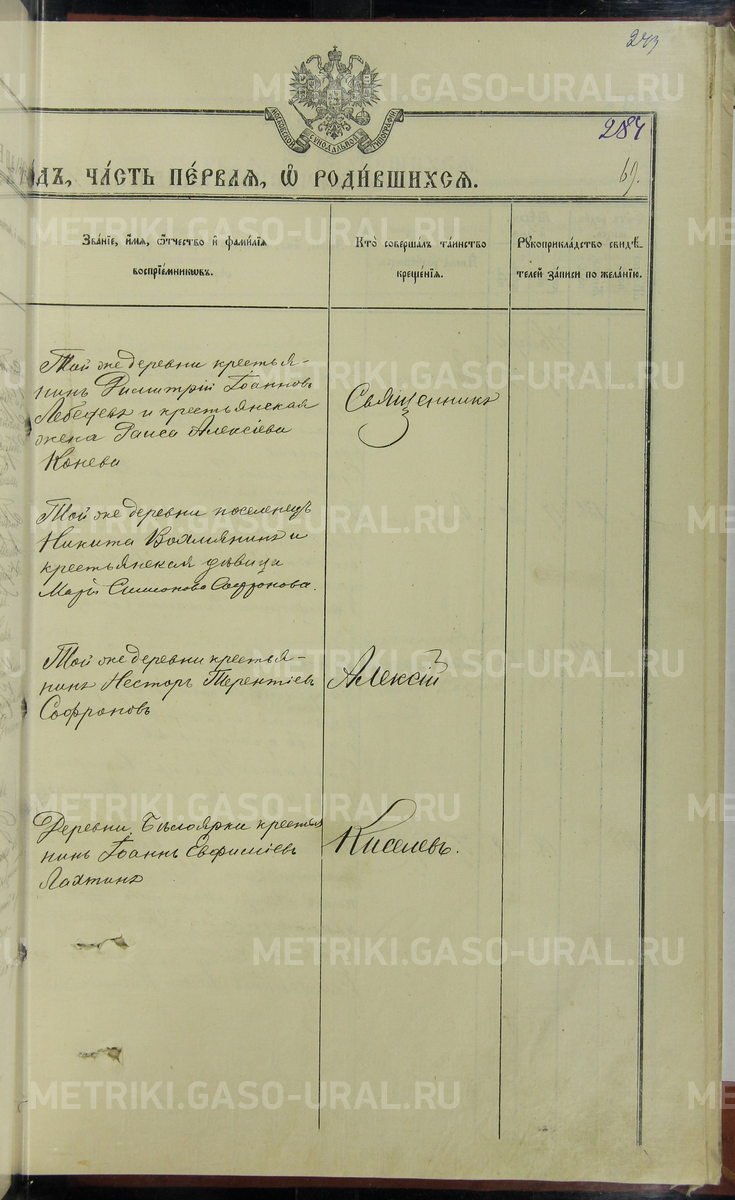 273
МОСКОВСКОЙ СѴНОДАЛЬНОЙ ТИПОГРАФІИ
284
ГОДЪ, ЧА́СТЬ ПЕ́РВАЯ, Ѽ РОДИ́ВШИХСЯ.
69.
Зва́нїе, и́мя, ѻ҆́тчество и҆ фами́лїя
воспрїе́мникѡвъ.
Кто̀ соверша́лъ та́инство
креще́нїя.
Рꙋкоприкла́дство свидѣ́-
телей за́писи по жела́нїю.
Той же деревни крестья-
нинъ Димитрій Іоанновъ
Лебедевъ и крестьянская
жена Раиса Алексіева
Конева
Священникъ
Той же деревни поселенецъ
Никита Вахмянинъ и
крестьянская дѣвица
Марія Симонова Софронова.
Той же деревни крестья-
нинъ Несторъ Терентіевъ
Софроновъ
Алексій
Деревни Бѣлоярки крестья
нинъ Іоаннъ Евфиміевъ
Лахтинъ
Киселевъ.
METRIKI.GASO-URAL.RU